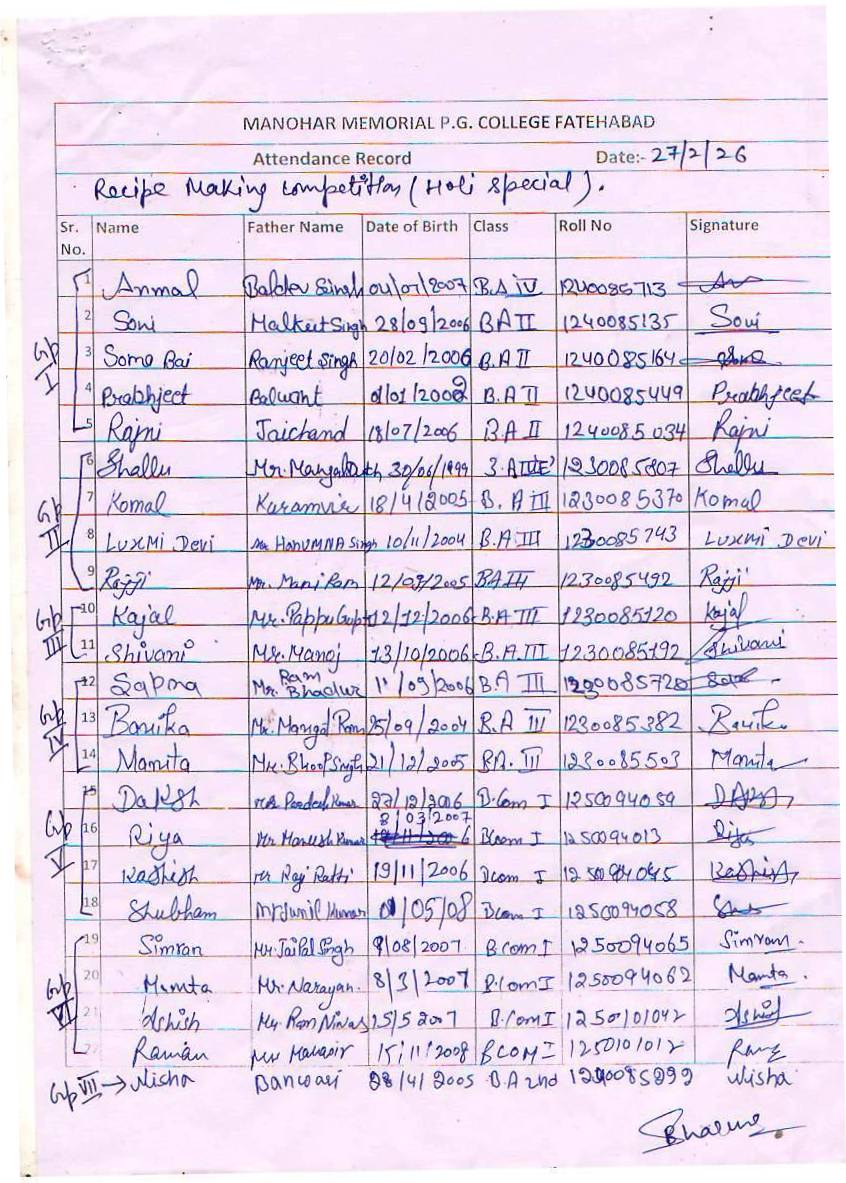 MANOHAR MEMORIAL P.G. COLLEGE FATEHABAD
Attendance Record Date:- 27/2/26
Recipe Making competition (Holi special).
Sr. No. Name Father Name Date of Birth Class Roll No Signature
Gp I
1 Anmal Baldev Singh 04/07/2007 B.A IV 1240085713
2 Soni Malkeet Singh 28/09/2006 BA II 1240085135 Soni
3 Somo Bai Ranjeet Singh 20/02/2006 B.A II 1240085164
4 Prabhjeet Balwant 01/01/2002 B.A II 1240085449 Prabhjeet
5 Rajni Jaichand 18/07/2006 B.A II 1240085034 Rajni
Gp II
6 Shallu Mr. 30/06/1999 1230085807 Shallu
7 Komal Karamvir 18/4/2005 B.A III 1230085370 Komal
8 LUXMI DEVI HANUMNA Singh 10/11/2004 B.A III 1230085743 LUXMI DEVI
9 Rajji Mr. Mani Ram 12/09/2005 BA III 1230085492 Rajji
Gp III
10 Kajal Mr. Pappu Gupt 12/12/2006 B.A III 1230085120 Kajal
11 Shivani Mr. Manoj 13/10/2006 B.A III 1230085192 Shivani
Gp IV
12 Sapna Mr. Ram Bhadur 11/09/2006 B.A III 1230085720
13 Mr. Mangal Ram 25/09/2004 B.A III 1230085382
14 Mamita Mr. Bhoop Singh 21/12/2005 BA. III 1230085503 Mamita
Gp V
15 Daksh 27/12/2006 B.Com I 1250094059
16 Riya Mr Maneesh Kumar 8/03/2007 Bcom I 1250094013 Riya
17 Kashish Mr Raj Ratti 19/11/2006 Bcom I 1250094045 Kashish
18 Shubham Mr Sunil Kumar 01/05/08 Bcom I 1250094058
Gp VI
19 Simran Mr. Jaipal Singh 9/08/2007 B.Com I 1250094065 Simram.
20 Mamta Mr. Narayan. 8/3/2007 B.Com I 1250094062 Mamta.
21 Ashish Mr. Ram Niwas 15/5 2007 B.Com I 1250101042 Ashish
22 Raman Mr Mahavir 15/11/2008 BCOM I 1250101012
Gp VII → Nisha Banwari 28/4/2005 B.A 2nd 1240085299 Nisha